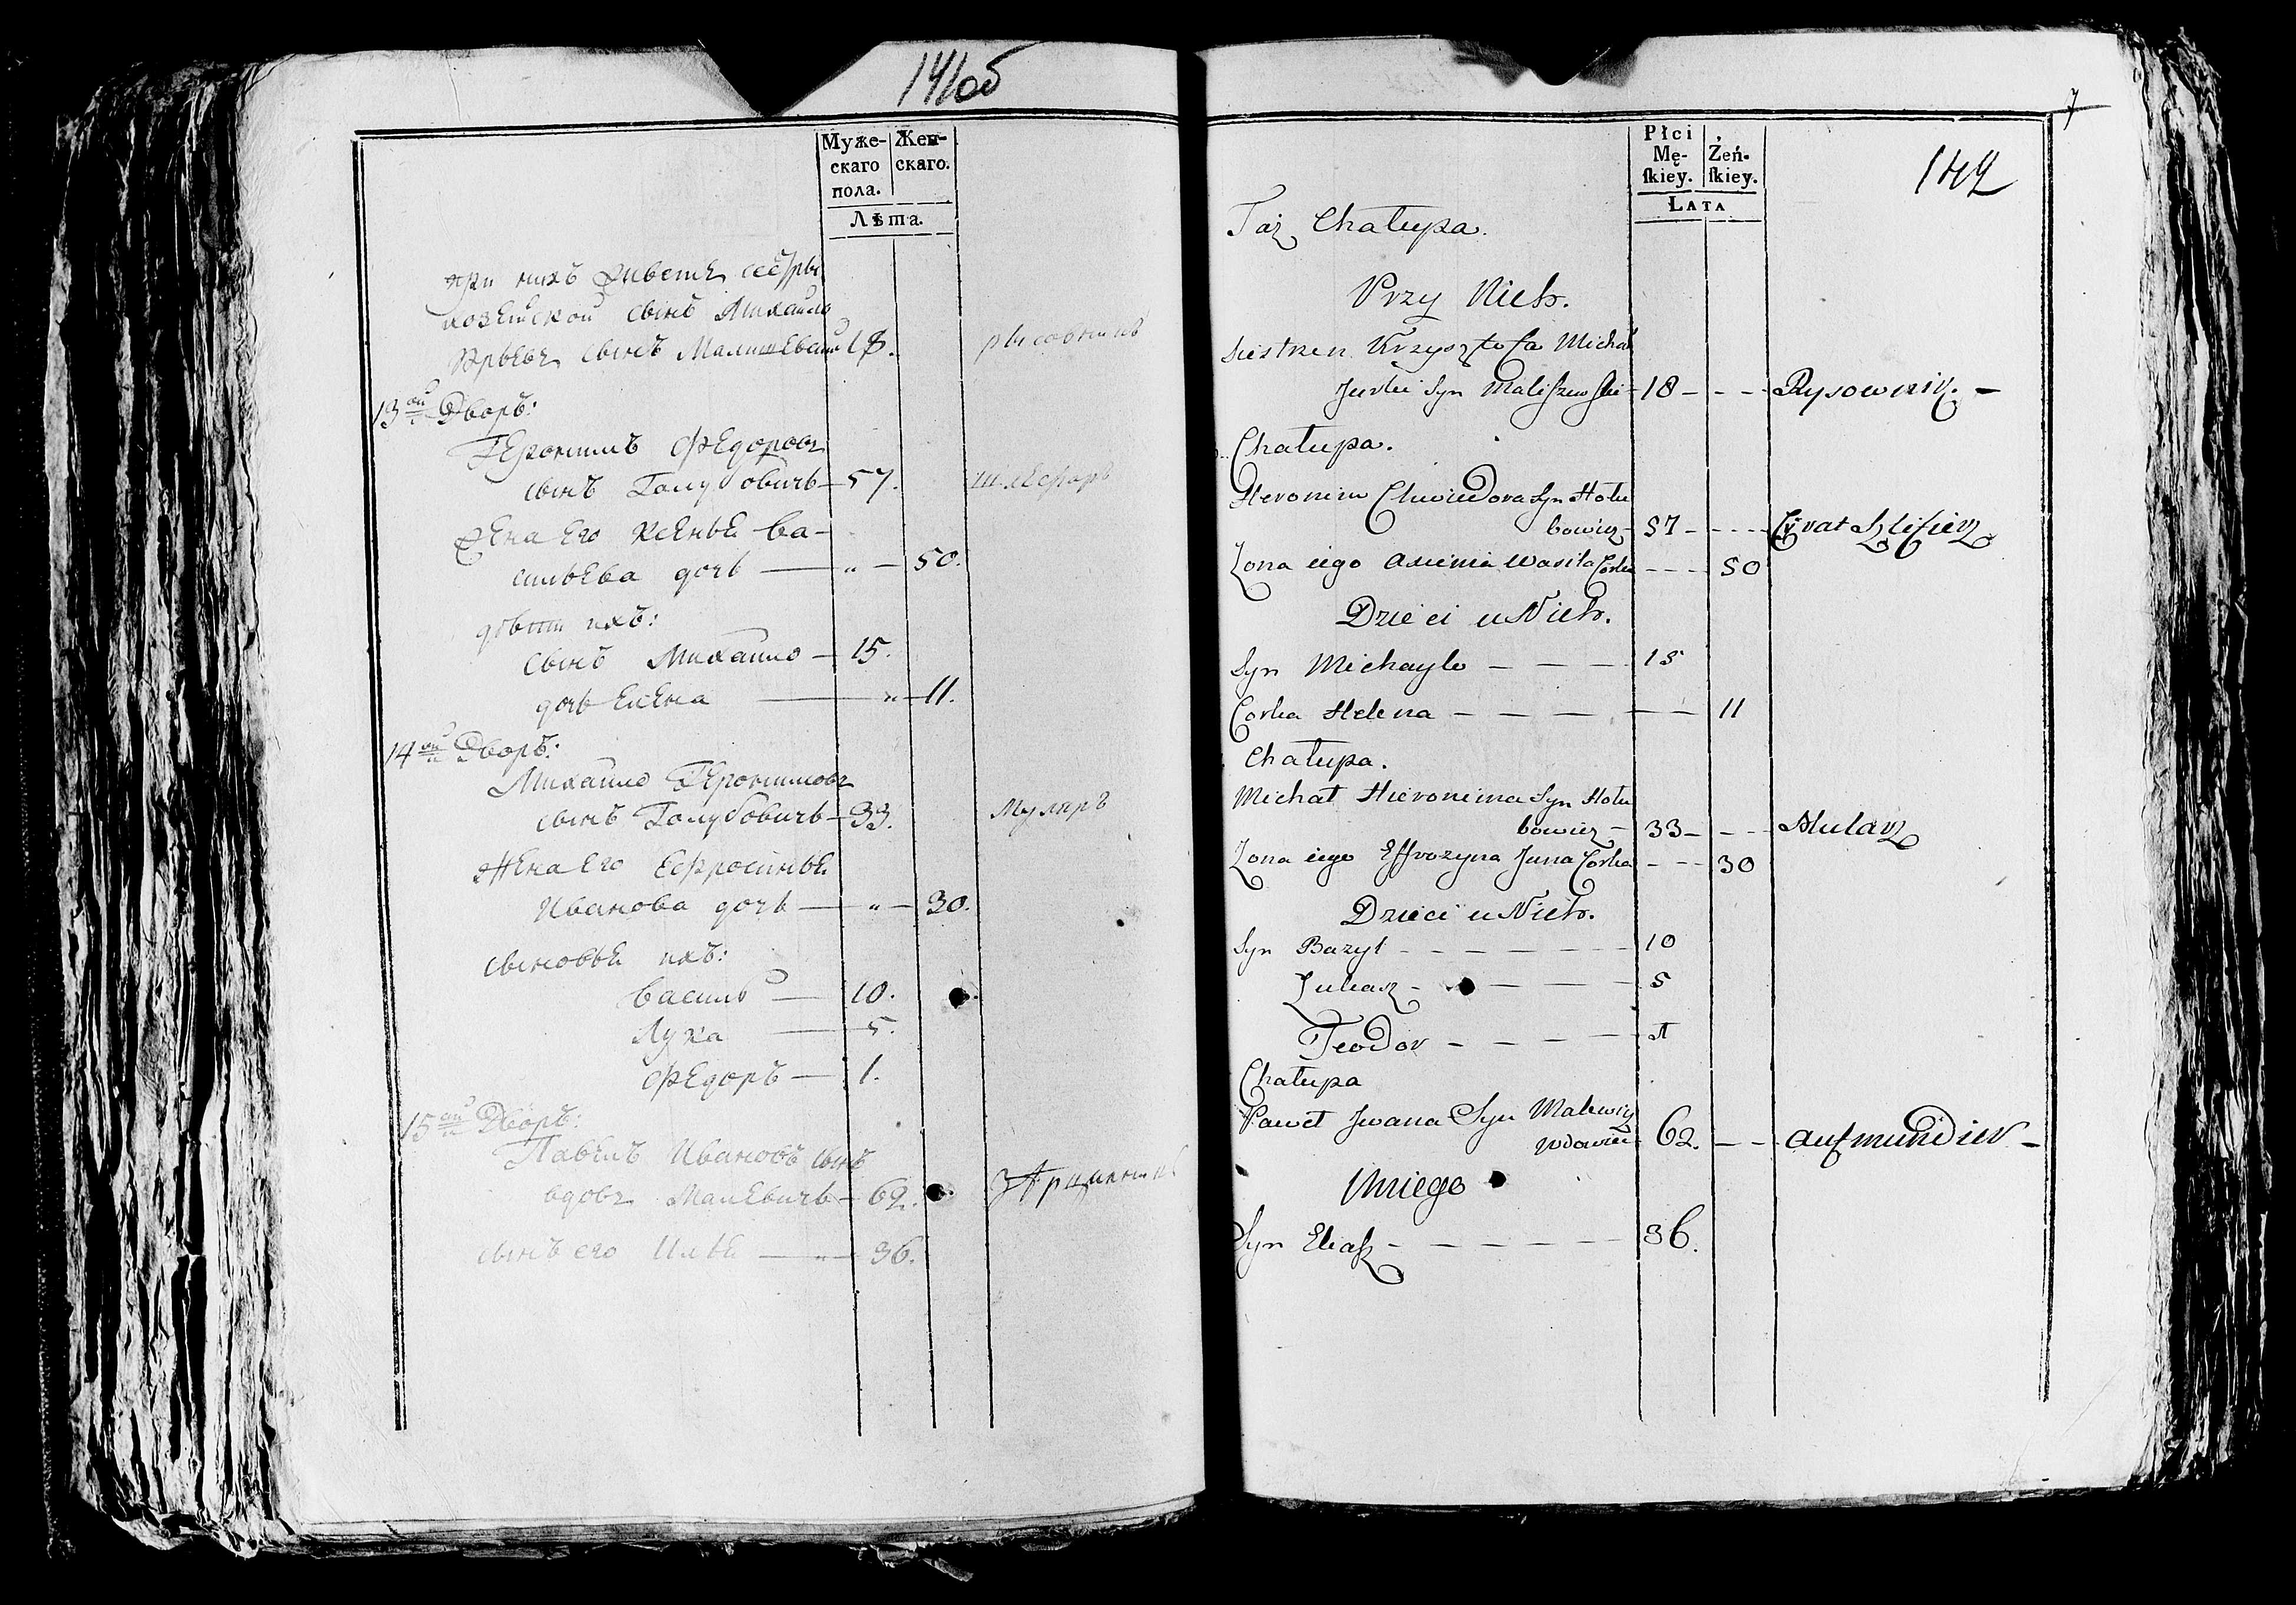 141об
Муже-
скаго
пола.
Жен-
скаго.
Лѣта.
при нихъ живетъ сестры
хозяйской сынъ Михайло
Юрьевъ сынъ Малишевски 18. рысовникъ
13ой Дворъ:
Геронимъ Федоровъ
сынъ Голубовичь 57. шлефаръ
жена его Ксенья Ва-
сильева дочь — " — 50.
дѣти ихъ:
сынъ Михайло — 15.
дочь Елена — " — 11.
14ой Дворъ:
Михайло Геронимовъ
сынъ Голубовичь — 33. Муляръ
жена его Ефросинья
Иванова дочь — " — 30.
сыновья ихъ:
Василь — 10.
Лука — 5.
Федоръ — 1.
15ой Дворъ:
Павелъ Ивановъ сынъ
вдовъ Малевичь — 62.
сынъ его Илья — " — 36.
7
142
Płci
Mę-
ſkiey.
Żeń-
ſkiey.
LATA
Taż Chałupa.
Przy Nich.
Siestrzen Krzysztofa Michał
Jurki Syn Maliszewski 18 - - - Rysownik. -
Chałupa.
Heronim Chwiedora Syn Hołu
bowicz - 57 - - - - Cyrat Szlifierz
Żona iego Axienia Wasila Corka - - - 50
Dzieci u Nich.
Syn Michayło — — — 15
Corka Helena — — — — — 11
Chałupa.
Michał Hieronima Syn Hołu
bowicz — 33 - - - Mularz
Żona iego Effrozyna Jwna Corka - - - 30
Dzieci u Nich.
Syn Bazyl - - - - - - 10
Łukasz - - — — — 5
Teodor - - - — 1
Chałupa
Paweł Jwana Syn Malewicz
wdowiec 62. — — aufmunidier -
U niego
Syn Eliasz - — — — — 36.